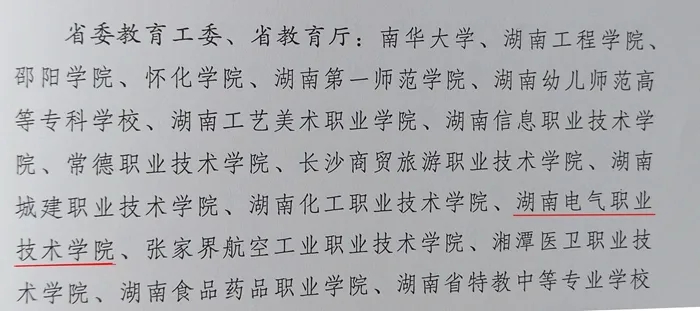 省委教育工委、省教育厅：南华大学、湖南工程学院、
邵阳学院、怀化学院、湖南第一师范学院、湖南幼儿师范高
等专科学校、湖南工艺美术职业学院、湖南信息职业技术学
院、常德职业技术学院、长沙商贸旅游职业技术学院、湖南
城建职业技术学院、湖南化工职业技术学院、湖南电气职业
技术学院、张家界航空工业职业技术学院、湘潭医卫职业技
术学院、湖南食品药品职业学院、湖南省特教中等专业学校